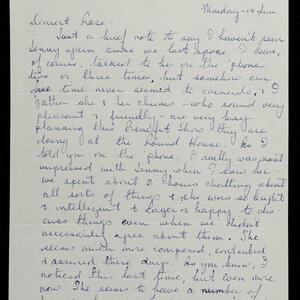 Monday - 19 Jan.
Dearest Rose -
Just a brief note to say I haven't seen
Jenny again since we last spoke. I have,
of course, talked to her on the 'phone
two or three times, but somehow our
free time never seemed to coincide, & I
gather she & her chums - who sound very
pleasant & friendly - are very busy
planning this Benefit Show they are
doing at the Round House. As I
told you on the 'phone, I really was most
impressed with Jenny when I saw her -
we spent about 3 hours chatting about
all sorts of things & she was so bright
& intelligent & eager & happy to dis-
cuss things even when we didn't
necessarily agree about them. She
seems much more composed, contented
& assured these days. As you know, I
noticed this last time, but even more
now. She seems to have a number of